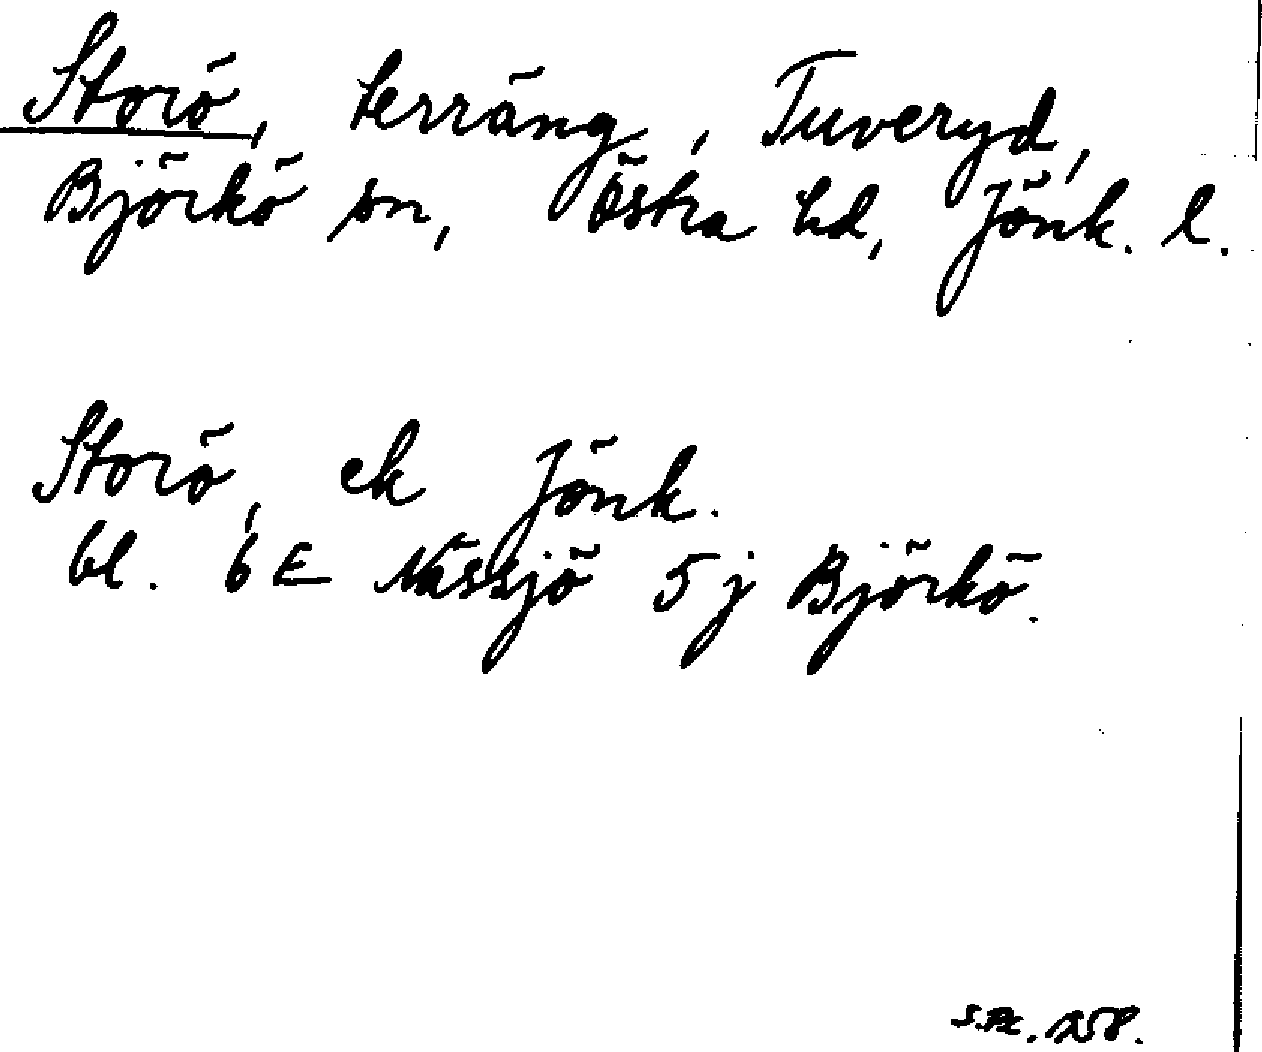 Storö, terräng, Tuveryd,
Björkö sn, Östra hd, Jönk. l.
Storö, ek Jönk.
bl. 6E Nässjö 5j Björkö.